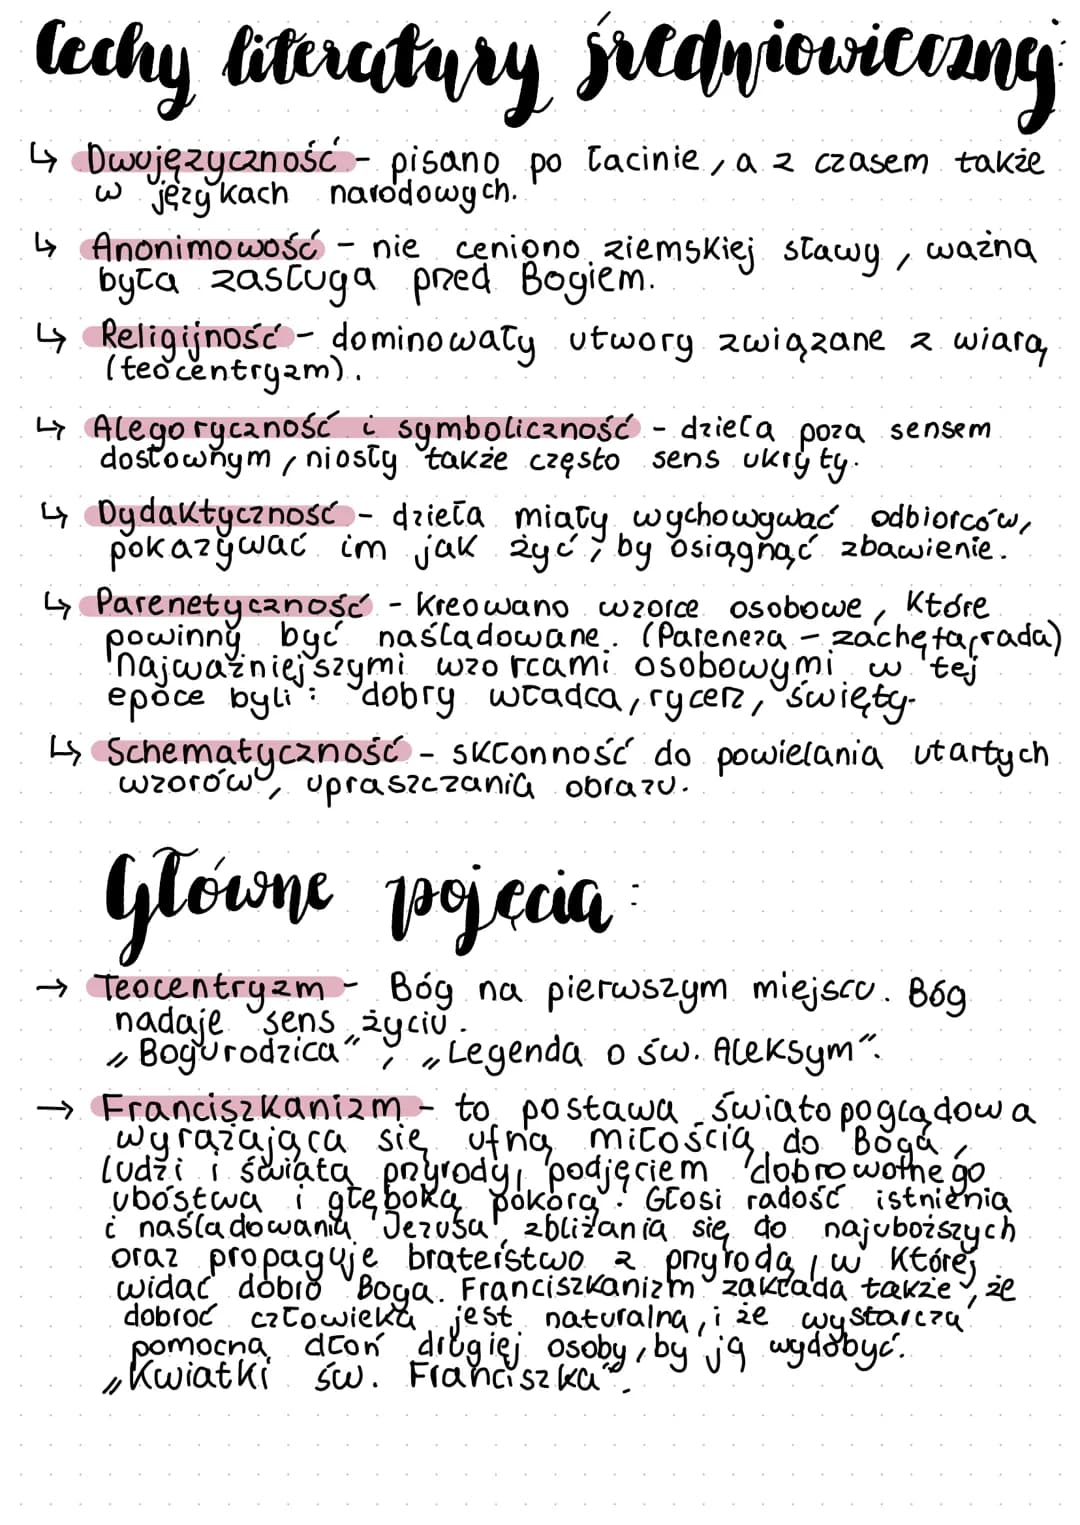 Cechy literatury średniowiecznej:
↳ Dwujęzyczność - pisano po łacinie, a z czasem także
w językach narodowych.
↳ Anonimowość - nie ceniono ziemskiej sławy, ważna
była zasługa przed Bogiem.
↳ Religijność - dominowały utwory związane z wiarą
(teocentryzm).
↳ Alegoryczność i symboliczność - dzieła poza sensem
dosłownym, niosły także często sens ukryty.
↳ Dydaktyczność - dzieła miały wychowywać odbiorców,
pokazywać im jak żyć, by osiągnąć zbawienie.
↳ Parenetyczność - kreowano wzorce osobowe, które
powinny być naśladowane. (Pareneza - zachęta, rada)
Najważniejszymi wzorcami osobowymi w tej
epoce byli: dobry władca, rycerz, święty.
↳ Schematyczność - skłonność do powielania utartych
wzorów, upraszczania obrazu.
Główne pojęcia:
→ Teocentryzm - Bóg na pierwszym miejscu. Bóg
nadaje sens życiu.
„Bogurodzica”, „Legenda o św. Aleksym”.
→ Franciszkanizm - to postawa światopoglądowa
wyrażająca się ufną miłością do Boga,
ludzi i świata przyrody, podjęciem dobrowolnego
ubóstwa i głęboką pokorą. Głosi radość istnienia
i naśladowania Jezusa, zbliżania się do najuboższych
oraz propaguje braterstwo z przyrodą, w której
widać dobro Boga. Franciszkanizm zakłada także, że
dobroć człowieka jest naturalna, i że wystarczy
pomocna dłoń drugiej osoby, by ją wydobyć.
„Kwiatki św. Franciszka”.